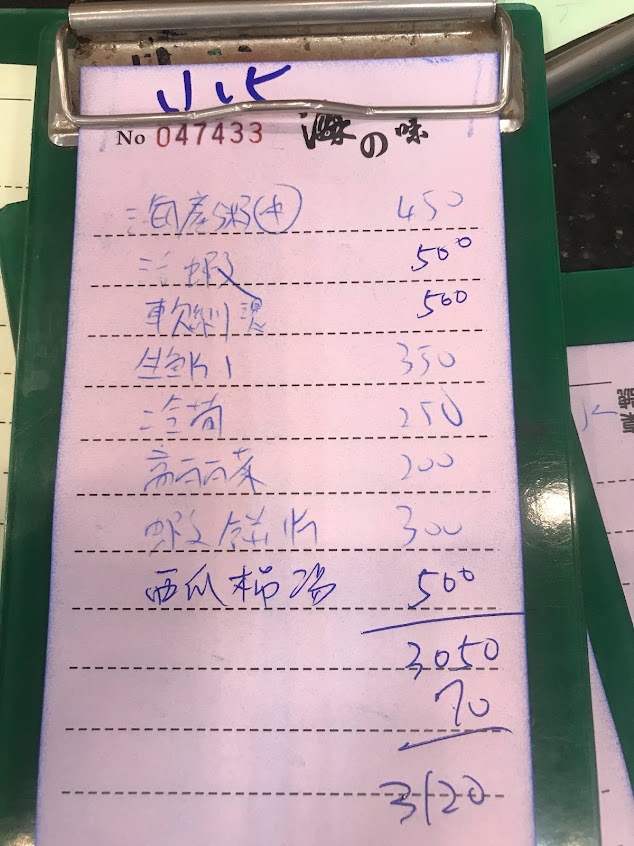 No 047433
の 味
海產粥(中) 450
蝦 500
軟絲 500
生魚片 350
冷筍 250
高麗菜 200
蝦餅 300
西瓜棉湯 500
3050
70
3120